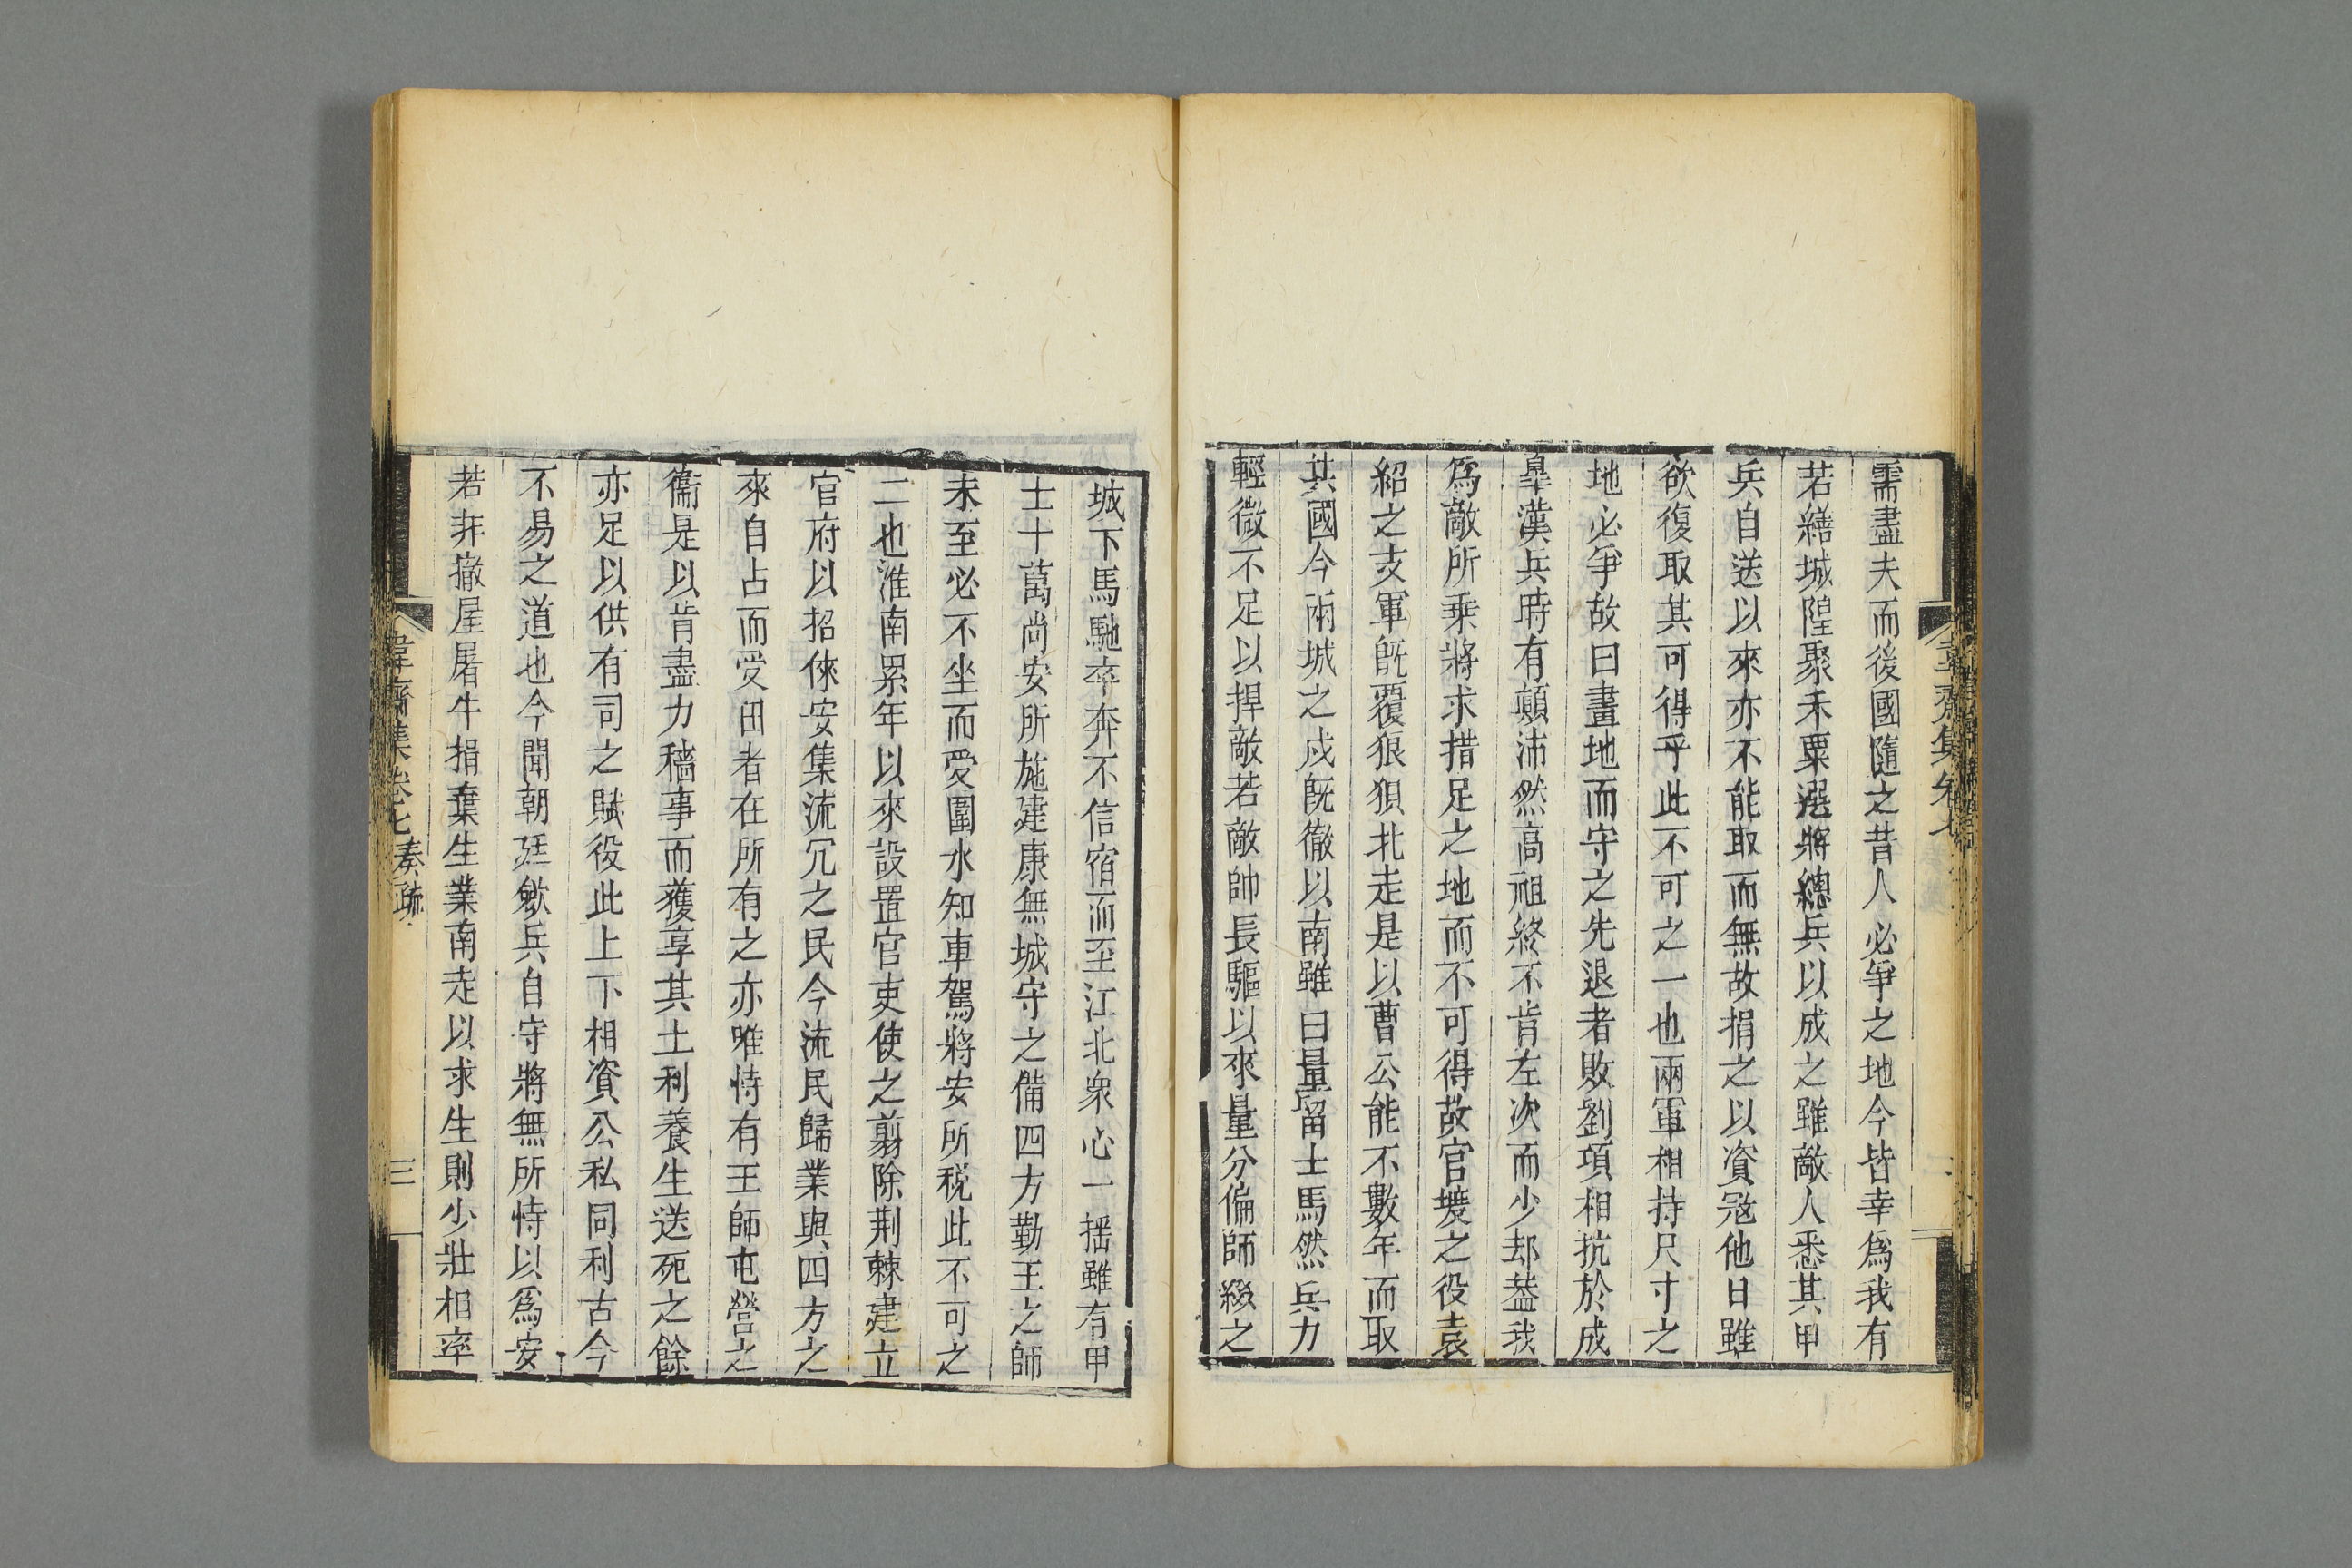 需盡夫而後國隨之昔人必爭之地今皆幸爲我有
若繕城隍聚禾粟選將總兵以成之雖敵人悉其甲
兵自送以來亦不能取而無故捐之以資冦他日雖
欲復取其可得乎此不可之一也兩軍相持尺寸之
地必爭故曰畫地而守之先退者敗劉項相抗於成
臯漢兵時有顛沛然高祖終不肯左次而少却葢我
爲敵所乗將求措足之地而不可得故官壊之役袁
紹之支軍旣覆狼狽北走是以曹公能不數年而取
其國今兩城之戍旣徹以南雖曰量留士馬然兵力
輕微不足以捍敵若敵帥長驅以來量分偏師綴之
城下馬馳卒奔不信宿而至江北衆心一揺雖有甲
士十萬尚安所施建康無城守之備四方勤王之師
未至必不坐而愛圍水知車駕將安所税此不可之
二也淮南累年以來設置官吏使之翦除荆棘建立
官府以招倈安集流冗之民今流民歸業與四方之
來自占而受田者在所有之亦唯恃有王師屯營之
衞是以肯盡力穡事而獲享其土利養生送死之餘
亦足以供有司之賦役此上下相資公私同利古今
不易之道也今聞朝廷歛兵自守將無所恃以爲安
若非撤屋屠牛捐棄生業南走以求生則少壯相率
韋齋集卷七奏疏
三